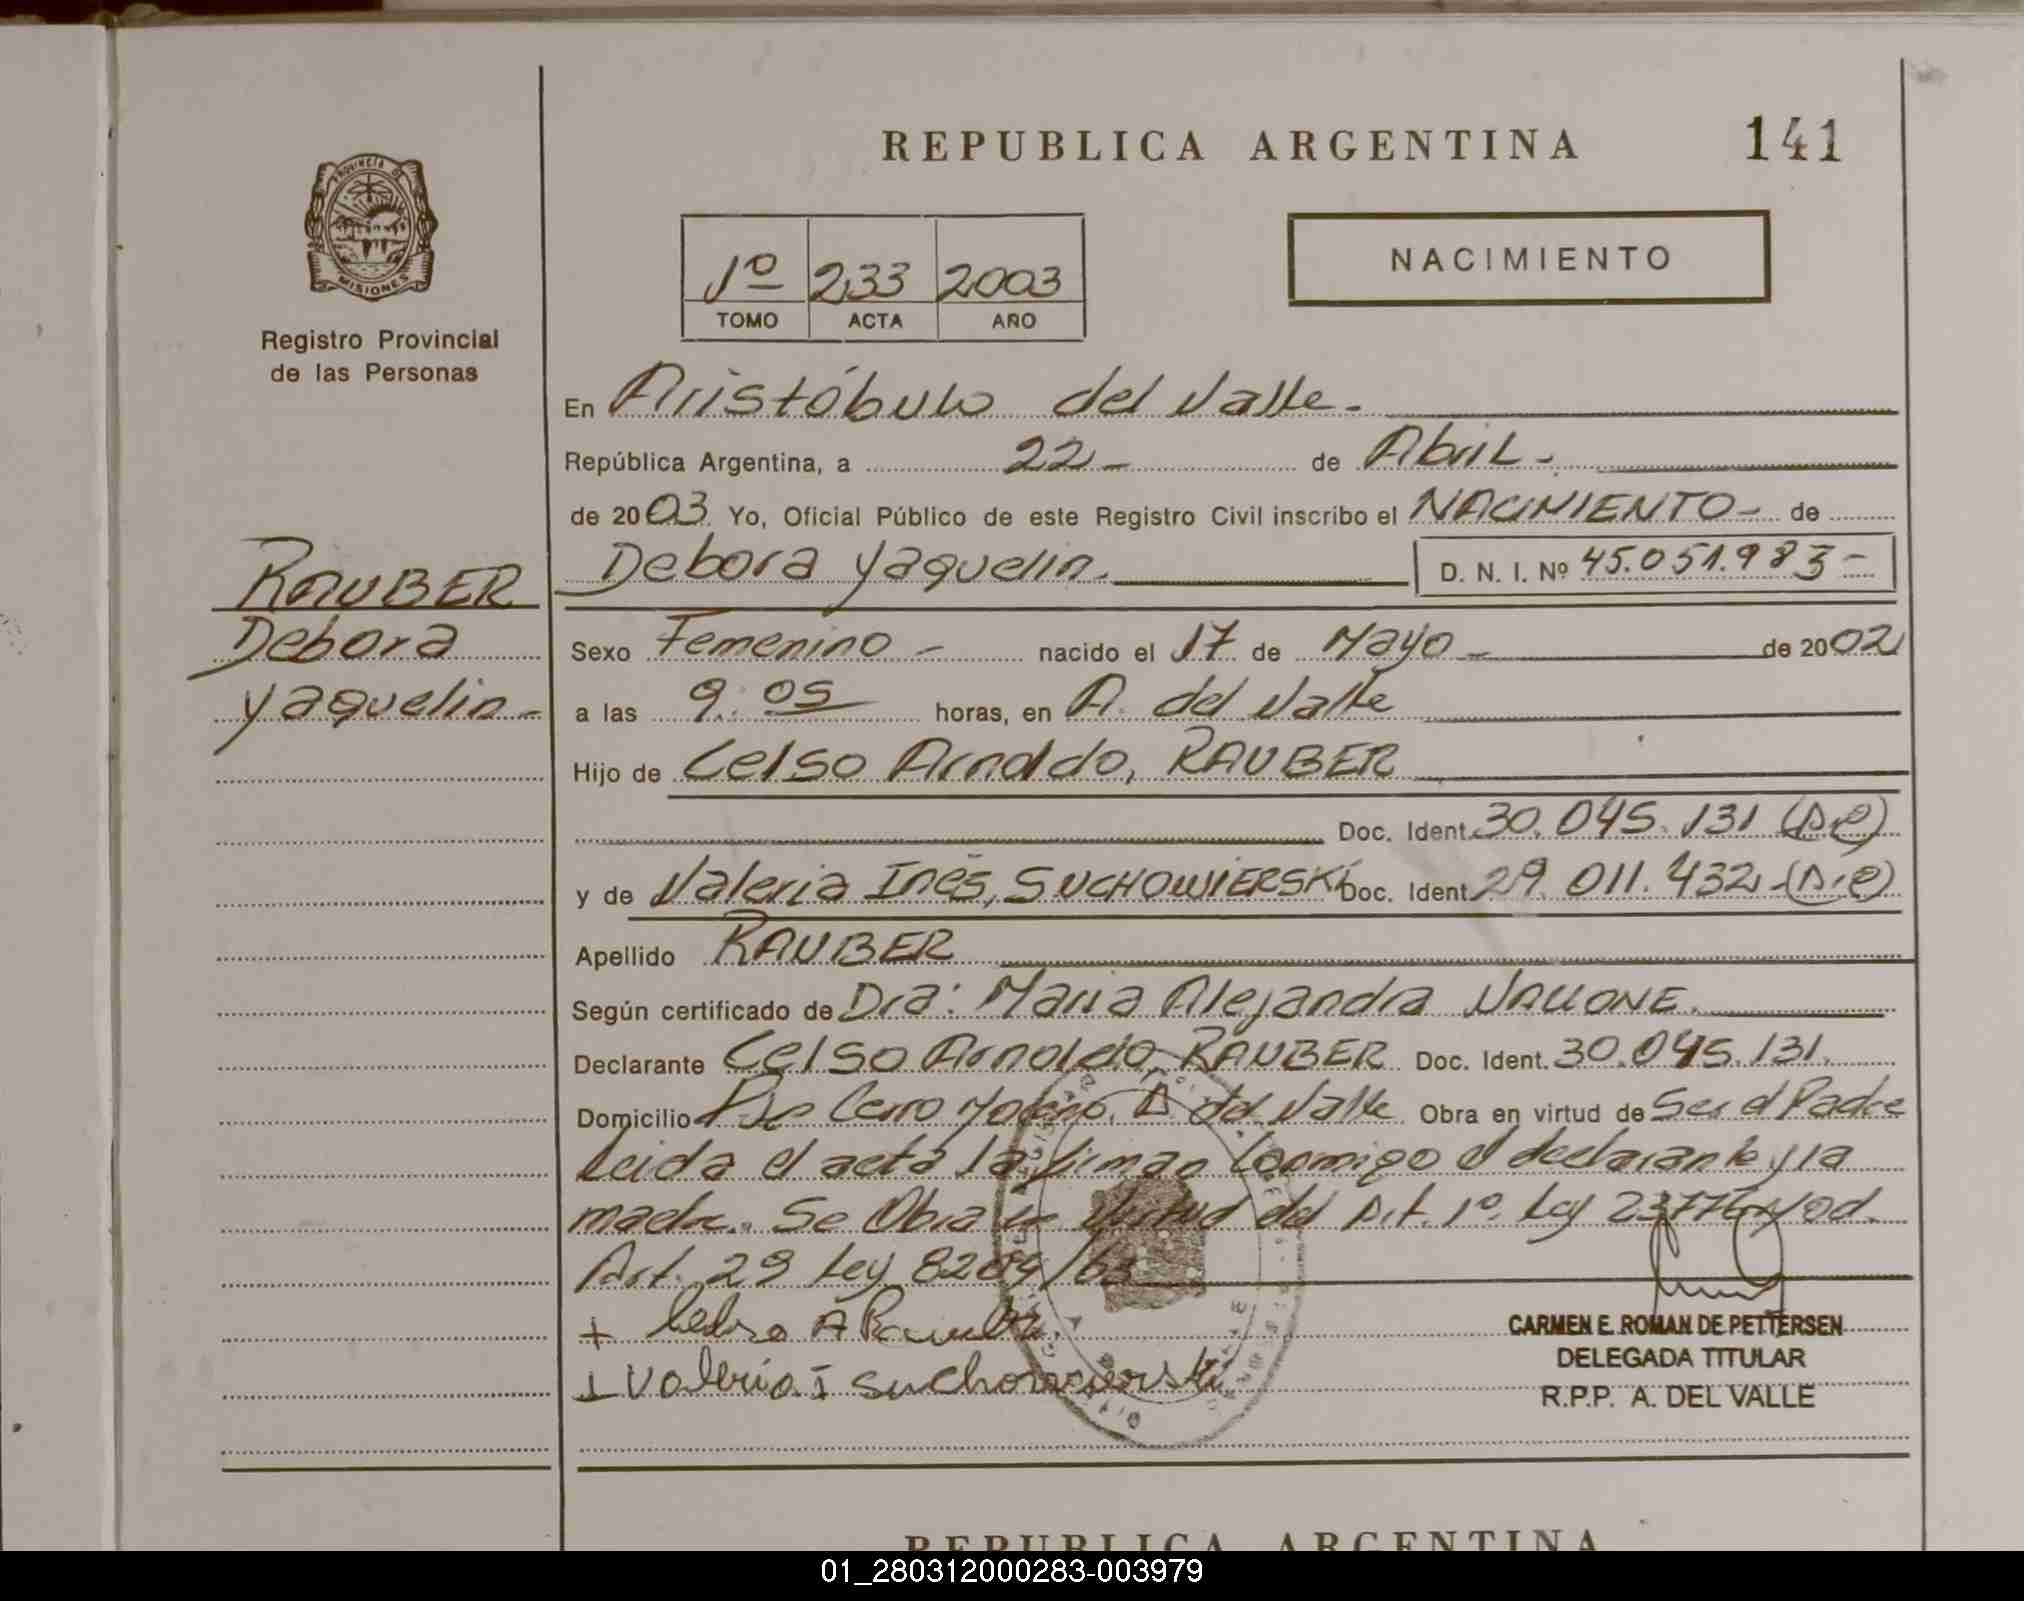 REPUBLICA ARGENTINA 141
PROVINCIA DE MISIONES
Registro Provincial
de las Personas
1º 233 2003
TOMO ACTA AÑO
NACIMIENTO
En Aristóbulo del Valle.-
República Argentina, a 22- de Abril.-
de 2003. Yo, Oficial Público de este Registro Civil inscribo el NACIMIENTO- de
Debora Yaquelin. D. N. I. Nº 45.051.983-
RAUBER
Debora
Yaquelin-
Sexo Femenino- nacido el 17 de Mayo- de 2002
a las 9:05 horas, en A. del Valle
Hijo de Celso Arnoldo, RAUBER
Doc. Ident. 30.045.131
y de Valeria Inés, SUCHOWIERSKI Doc. Ident. 29.011.432
Apellido RAUBER
Según certificado de Dra: Maria Alejandra VALLONE.
Declarante Celso Arnoldo, RAUBER Doc. Ident. 30.045.131.
Domicilio Cerro Moreno, A. del Valle Obra en virtud de Ser el Padre
Leida el acta la firman conmigo el declarante y la
madre. Se Obra en virtud del Art. 1º Ley
Art. 29 Ley 8204/63
+ Celso A Rauber
Valeria I suchowierski
CARMEN E. ROMAN DE PETTERSEN
DELEGADA TITULAR
R.P.P. A. DEL VALLE
REPUBLICA ARGENTINA
01_280312000283-003979